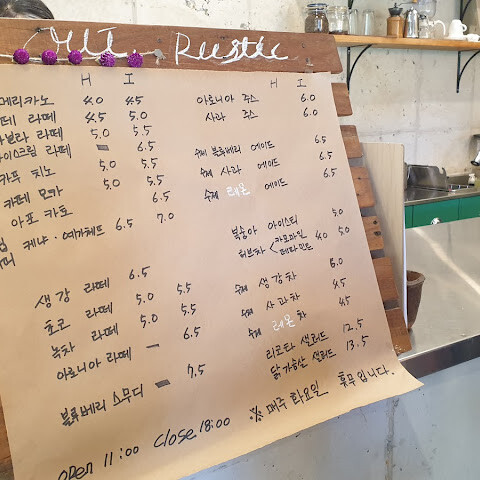 Mt. Rustic
H I
메리카노 4.0 4.5
떼 라떼 4.5 5.0
닐라 라떼 5.0 5.5
아이스크림 라떼 - 6.5
카푸 치노 5.0 5.5
카페 모카 5.0 5.5
아포 카토 6.5
케냐·예가체프 6.5 7.0
생강 라떼 6.5
초코 라떼 5.0 5.5
녹차 라떼 5.0 5.5
아로니아 라떼 - 6.5
블루베리 스무디 - 7.5
H I
아로니아 주스 6.0
사과 주스 6.0
수제 블루베리 에이드 6.5
수제 사과 에이드 6.5
수제 레몬 에이드 6.5
복숭아 아이스티 5.0
허브차 < 카모마일 페파민트 4.0 5.0
수제 생강차 6.0
수제 사과차 4.5
수제 레몬차 4.5
리코타 샐러드 12.5
닭가슴살 샐러드 13.5
open 11:00 close 18:00 ※ 매주 화요일 휴무입니다.